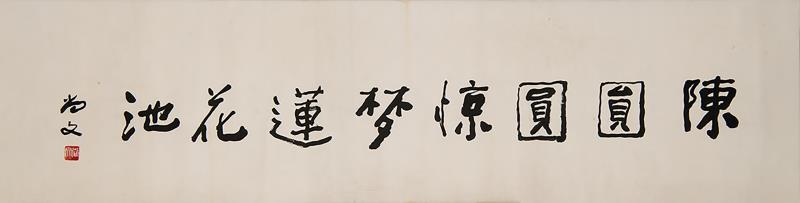 陳圓圓惊梦蓮花池
尚文